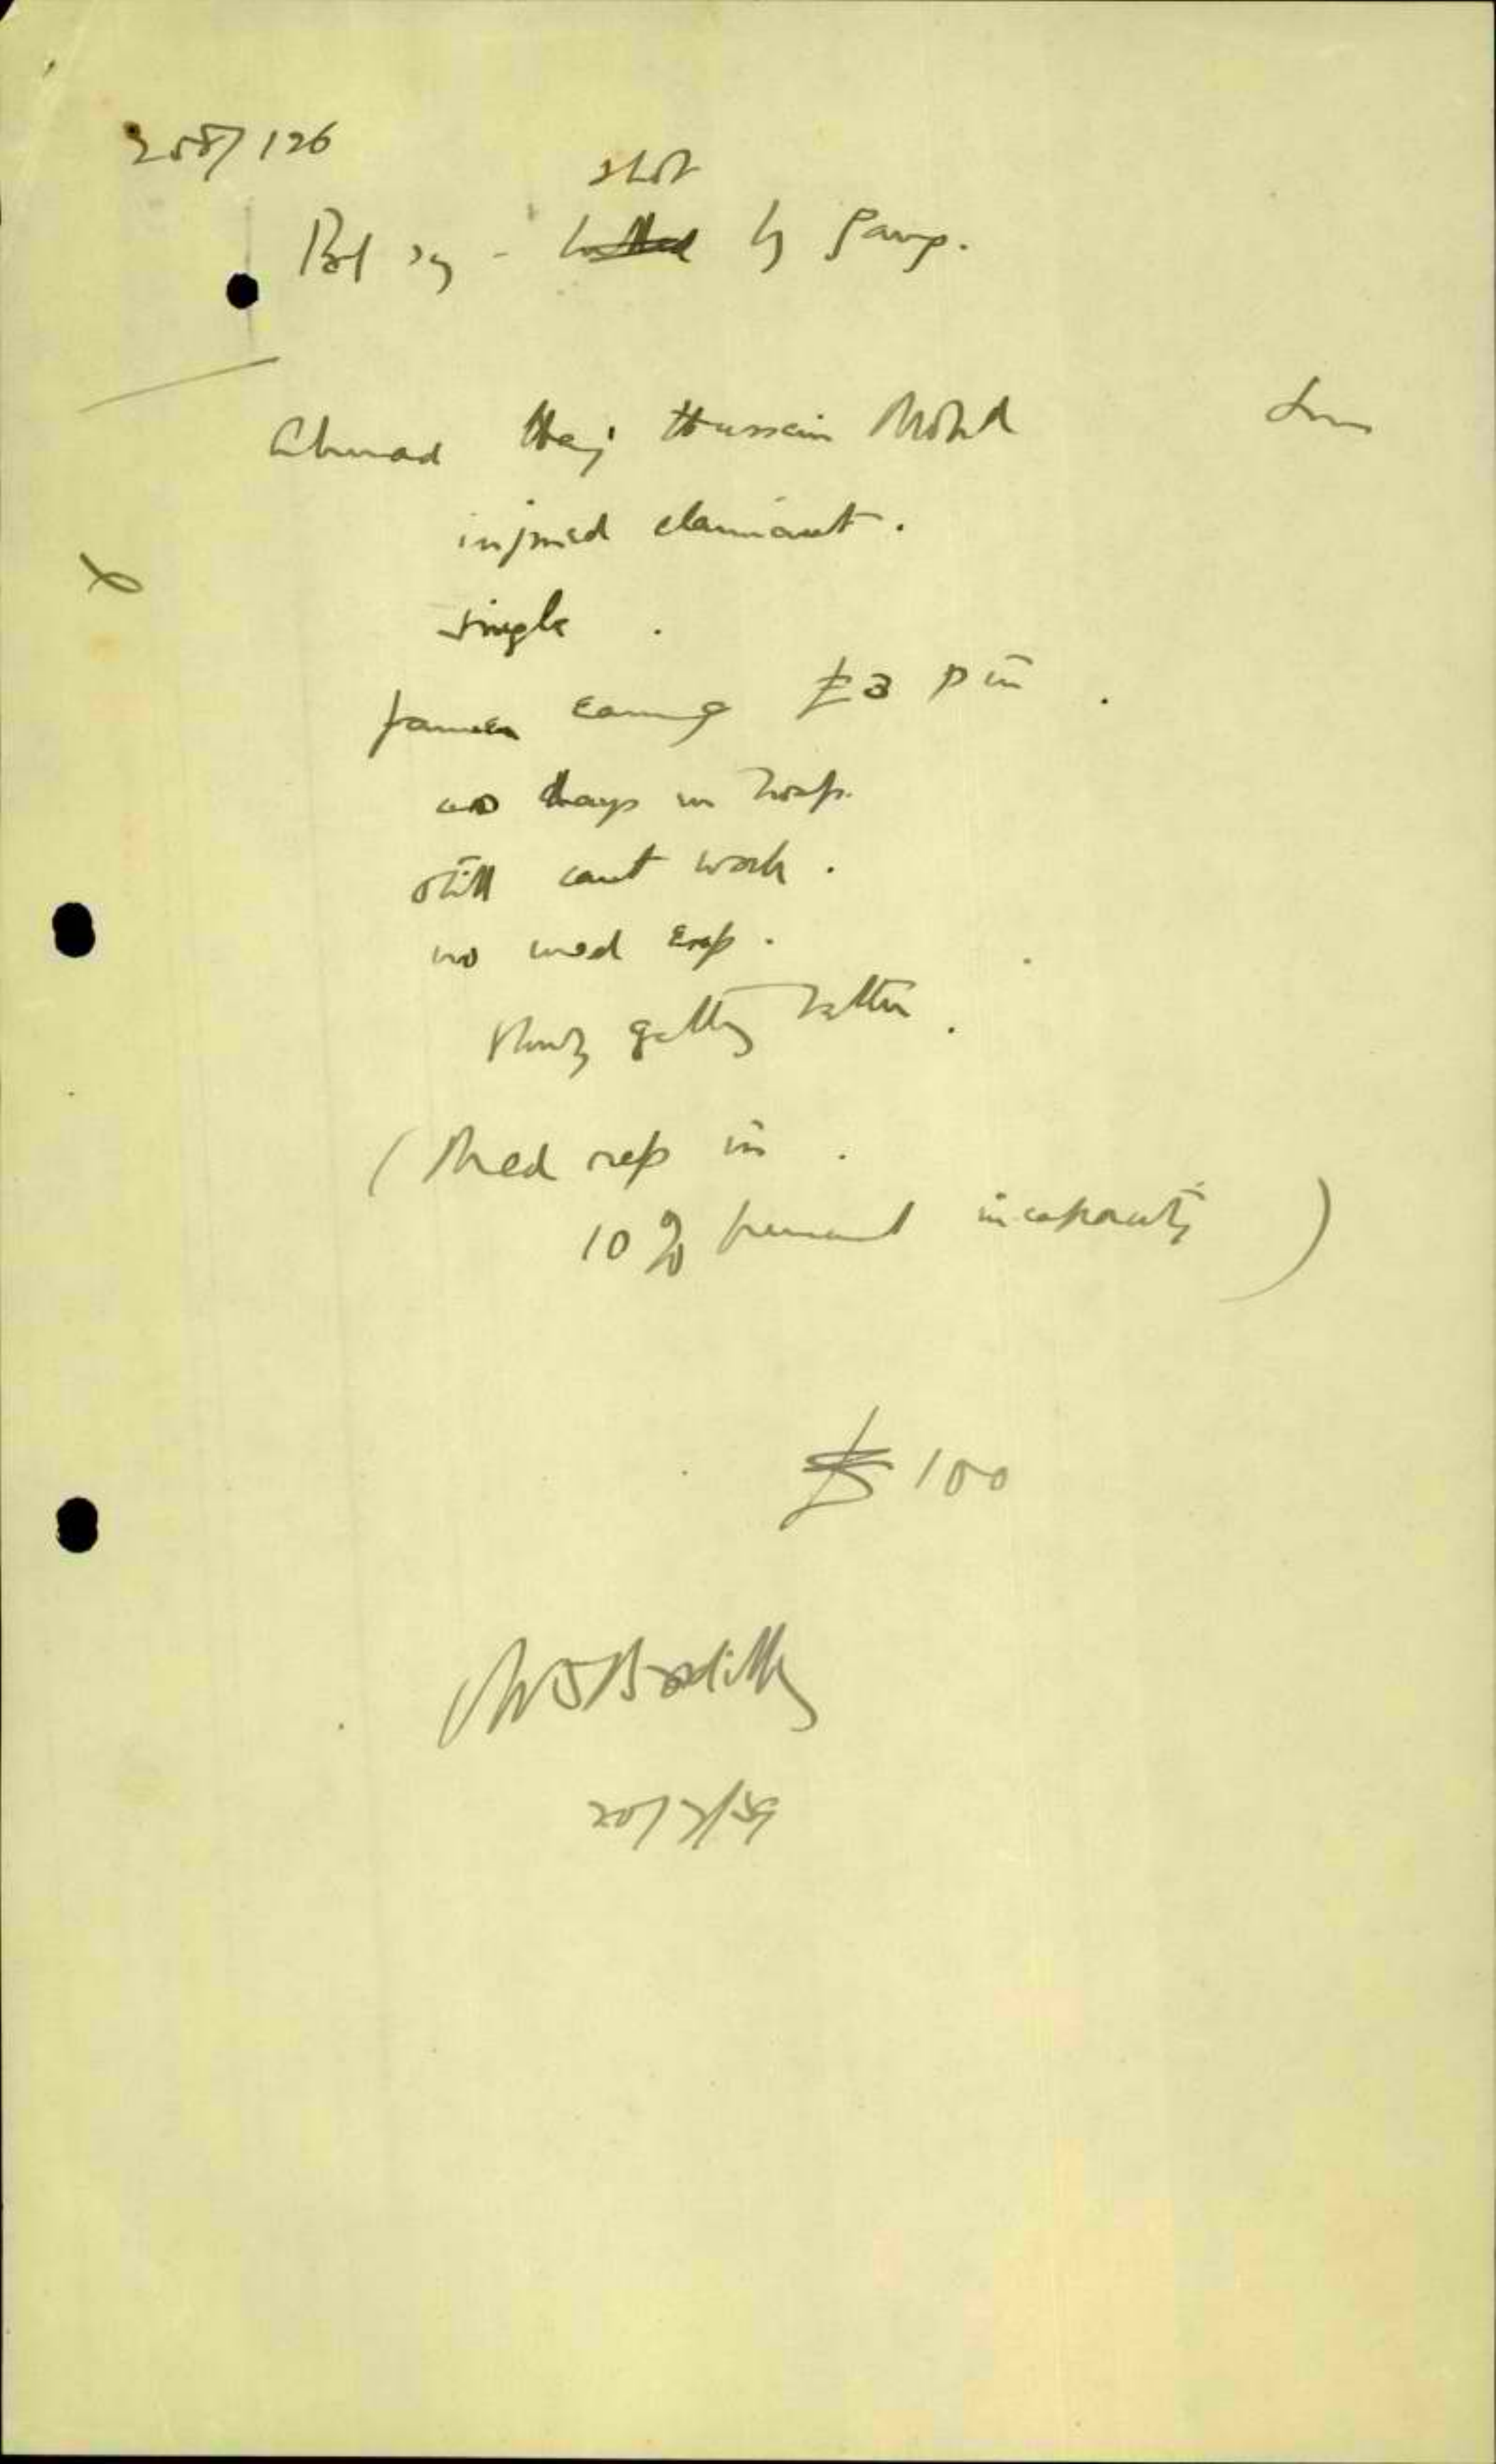 258/126
shot
by Gang.
Ahmad Haj Hussein Mohd
injured claimant.
single.
farmer earning £3 p m.
days in hosp.
still cant work.
no med exp.
slowly getting better.
(Med rep in.
10% permanent incapacity)
£100